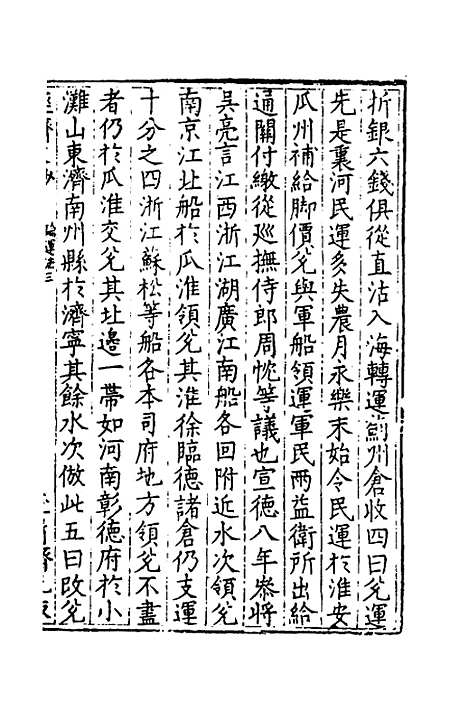 折銀六錢俱從直沽入海轉運薊州倉收四曰兌運
先是裏河民運多失農月永樂末始令民運於淮安
瓜州補給脚價兌與軍船領運軍民兩益衛所出給
通關付繳從巡撫侍郎周忱等議也宣德八年叅將
吳亮言江西浙江湖廣江南船各回附近水次領兌
南京江北船於瓜淮領兌其淮徐臨德諸倉仍支運
十分之四浙江蘇松等船各本司府地方領兌不盡
者仍於瓜淮交兌其北邊一帶如河南彰德府於小
灘山東濟南州縣於濟寧其餘水次倣此五曰改兌